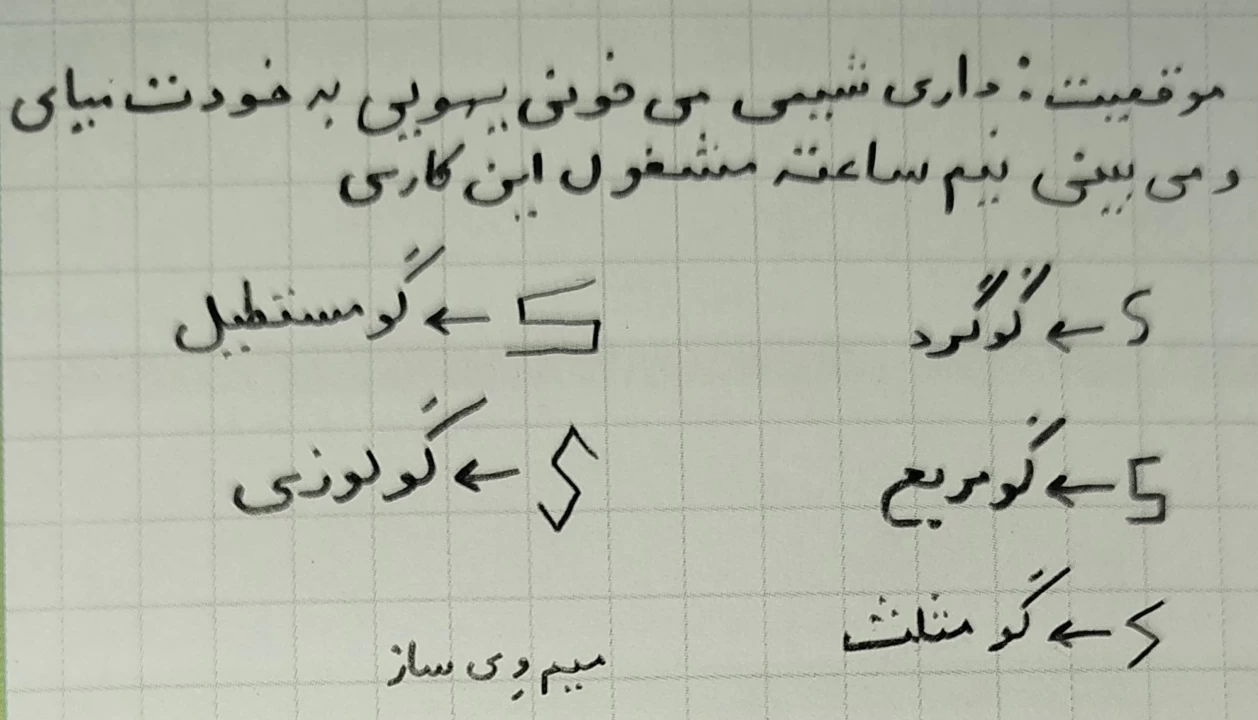 موقعیت: داری شیمی می خونی یهویی به خودت میای
و می بینی نیم ساعته مشغول این کاری
S ← گوگرد
S ← گو مستطیل
S ← گو مربع
S ← گو لوزی
S ← گو مثلث
میم وی ساز